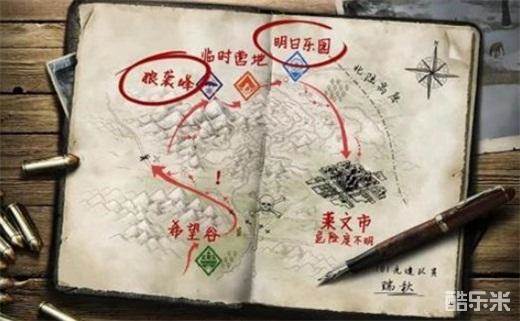 明日乐园
临时营地
狼袭峰
北泣高原
!
希望谷
莱文市
危险度不明
瑞秋
酷乐米